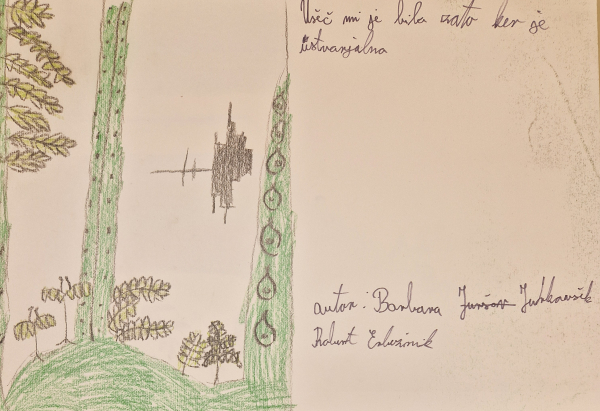 Všeč mi je bila zato ker je
ustvarjalna
autor: Barbara Juršov Jurkovšik
Robert Erbežnik